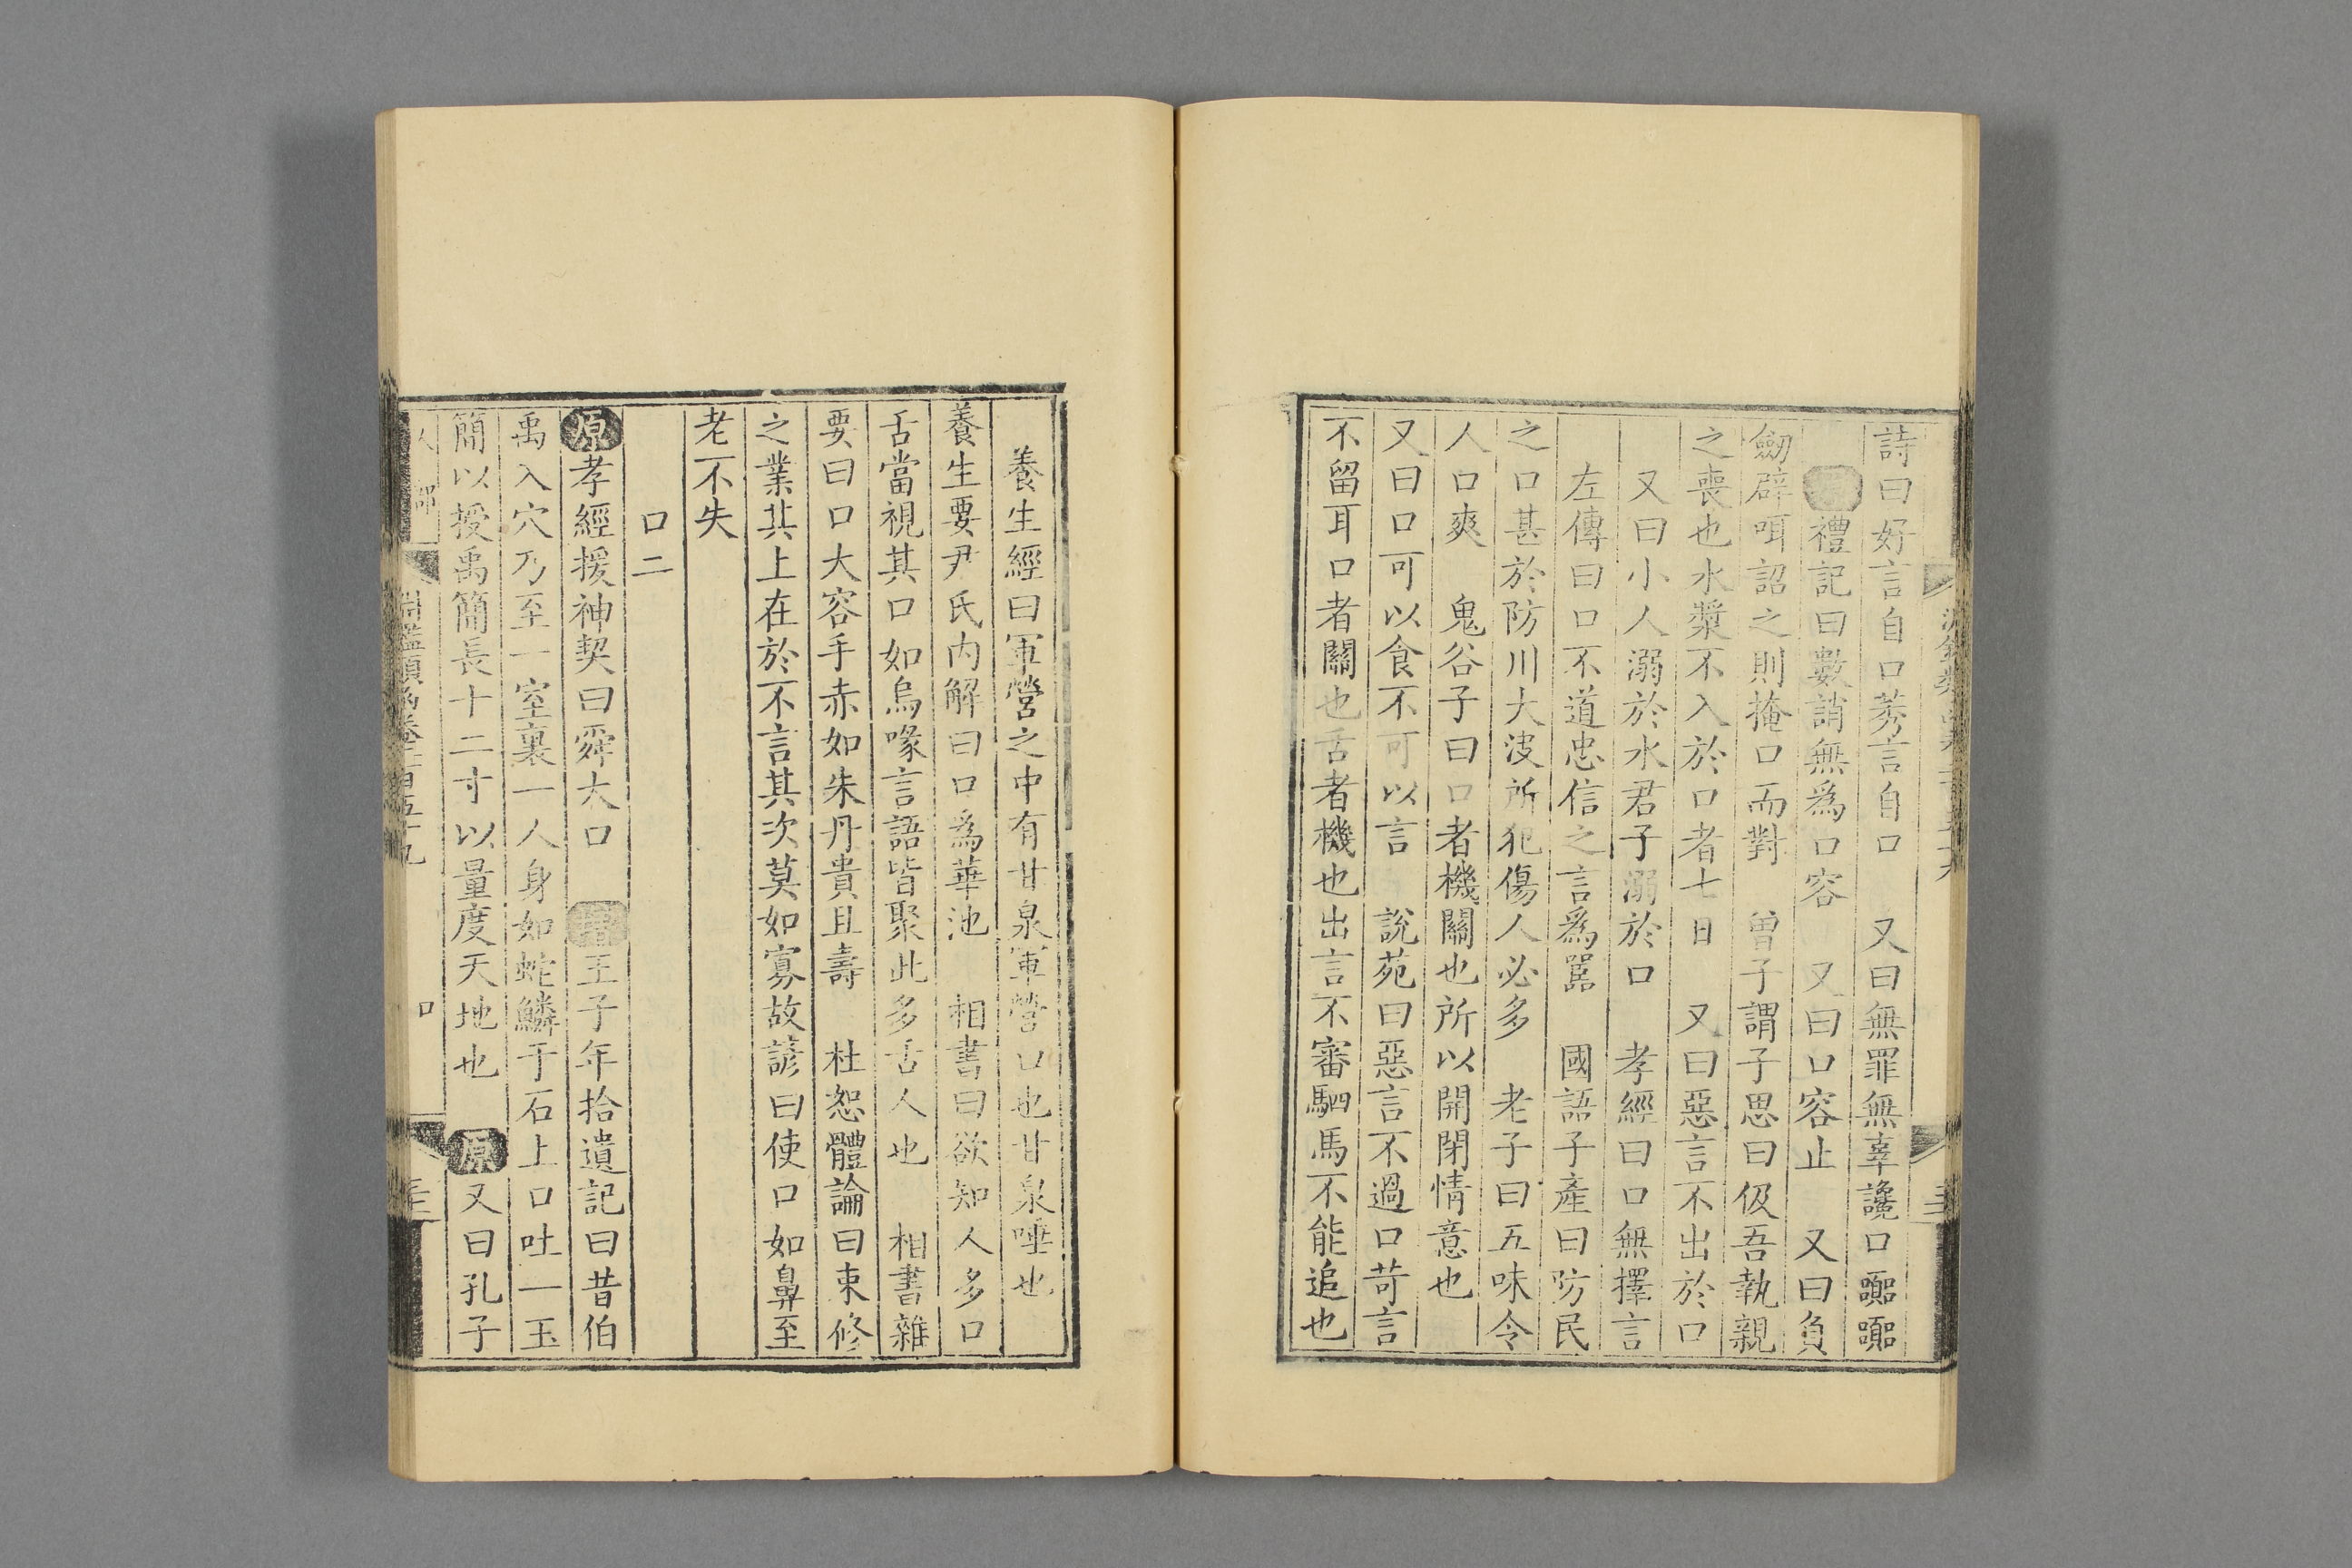 詩曰好言自口莠言自口　又曰無罪無辜讒口嚻嚻
禮記曰數誚無爲口容　又曰口容止　又曰負
劒辟咡詔之則掩口而對　曾子謂子思曰伋吾執親
之喪也水漿不入於口者七日　又曰惡言不出於口
又曰小人溺於水君子溺於口　孝經曰口無擇言
左傳曰口不道忠信之言爲嚚　國語子產曰防民
之口甚於防川大波所犯傷人必多　老子曰五味令
人口爽　鬼谷子曰口者機關也所以開閉情意也
又曰口可以食不可以言　說苑曰惡言不過口苛言
不留耳口者關也舌者機也出言不審駟馬不能追也
養生經曰軍營之中有甘泉軍營口也甘泉唾也
養生要尹氏內解曰口爲華池　相書曰欲知人多口
舌當視其口如烏喙言語皆聚此多舌人也　相書雜
要曰口大容手赤如朱丹貴且壽　杜恕體論曰束修
之業其上在於不言其次莫如寡故諺曰使口如鼻至
老不失
口二
原孝經援神契曰舜大口　增王子年拾遺記曰昔伯
禹入穴乃至一室裏一人身如蛇鱗于石上口吐一玉
簡以授禹簡長十二寸以量度天地也　原又曰孔子
淵鑑類函卷二百五十九
口